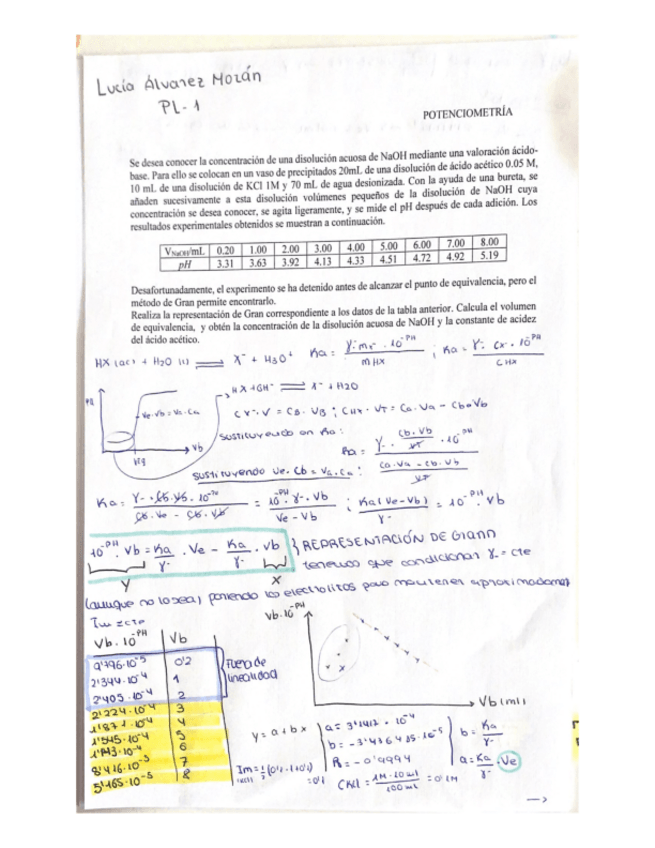 Lucía Álvarez Morán
PL-1
POTENCIOMETRÍA
Se desea conocer la concentración de una disolución acuosa de NaOH mediante una valoración ácido-
base. Para ello se colocan en un vaso de precipitados 20mL de una disolución de ácido acético 0.05 M,
10 mL de una disolución de KCl 1M y 70 mL de agua desionizada. Con la ayuda de una bureta, se
añaden sucesivamente a esta disolución volúmenes pequeños de la disolución de NaOH cuya
concentración se desea conocer, se agita ligeramente, y se mide el pH después de cada adición. Los
resultados experimentales obtenidos se muestran a continuación.
V_NaOH/mL 0.20 1.00 2.00 3.00 4.00 5.00 6.00 7.00 8.00
pH 3.31 3.63 3.92 4.13 4.33 4.51 4.72 4.92 5.19
Desafortunadamente, el experimento se ha detenido antes de alcanzar el punto de equivalencia, pero el
método de Gran permite encontrarlo.
Realiza la representación de Gran correspondiente a los datos de la tabla anterior. Calcula el volumen
de equivalencia, y obtén la concentración de la disolución acuosa de NaOH y la constante de acidez
del ácido acético.
HX (ac) + H2O (l) ⇌ X⁻ + H3O⁺ Ka = ; Ka = γ· Cx· 10^-PH / CHX
HX + OH⁻ ⇌ X⁻ + H2O
Ve·Vb = Va·Ca
Cx·V = CB·VB ; CHX·VT = Ca·Va - Cb·Vb
Vb
Veq
sustituyendo en Ka:
Ka = γ· Cb·Vb/VT ·10^-PH / Ca·Va - Cb·Vb/VT
sustituyendo Ve·Cb = Va·Ca:
Ka = = 10^-PH·γ·Vb / Ve-Vb ; Ka(Ve-Vb)/γ = 10^-PH·Vb
10^-PH·Vb = Ka/γ·Ve - Ka/γ·Vb } REPRESENTACIÓN DE GRANN
Y X
tenemos que condicionar γ = cte
(aunque no lo sea) poniendo los electrolitos para mantener aproximadamente
Im = cte
Vb·10^-PH
Vb·10^-PH Vb
9'796·10^-5 0'2
2'344·10^-4 1
2'405·10^-4 2
Fuera de
linealidad
2'224·10^-4 3
1'871·10^-4 4
1'545·10^-4 5
1'143·10^-4 6
8'416·10^-5 7
5'165·10^-5 8
Vb (ml)
y = a + bx
a = 3'1412·10^-4
b = -3'436485·10^-5
R = -0'9994
b = Ka/γ
a = Ka/γ·Ve
Im = 1/2 (0'1·1+0'1) = 0'1
CKCl = 1M·10ml/100ml = 0'1M